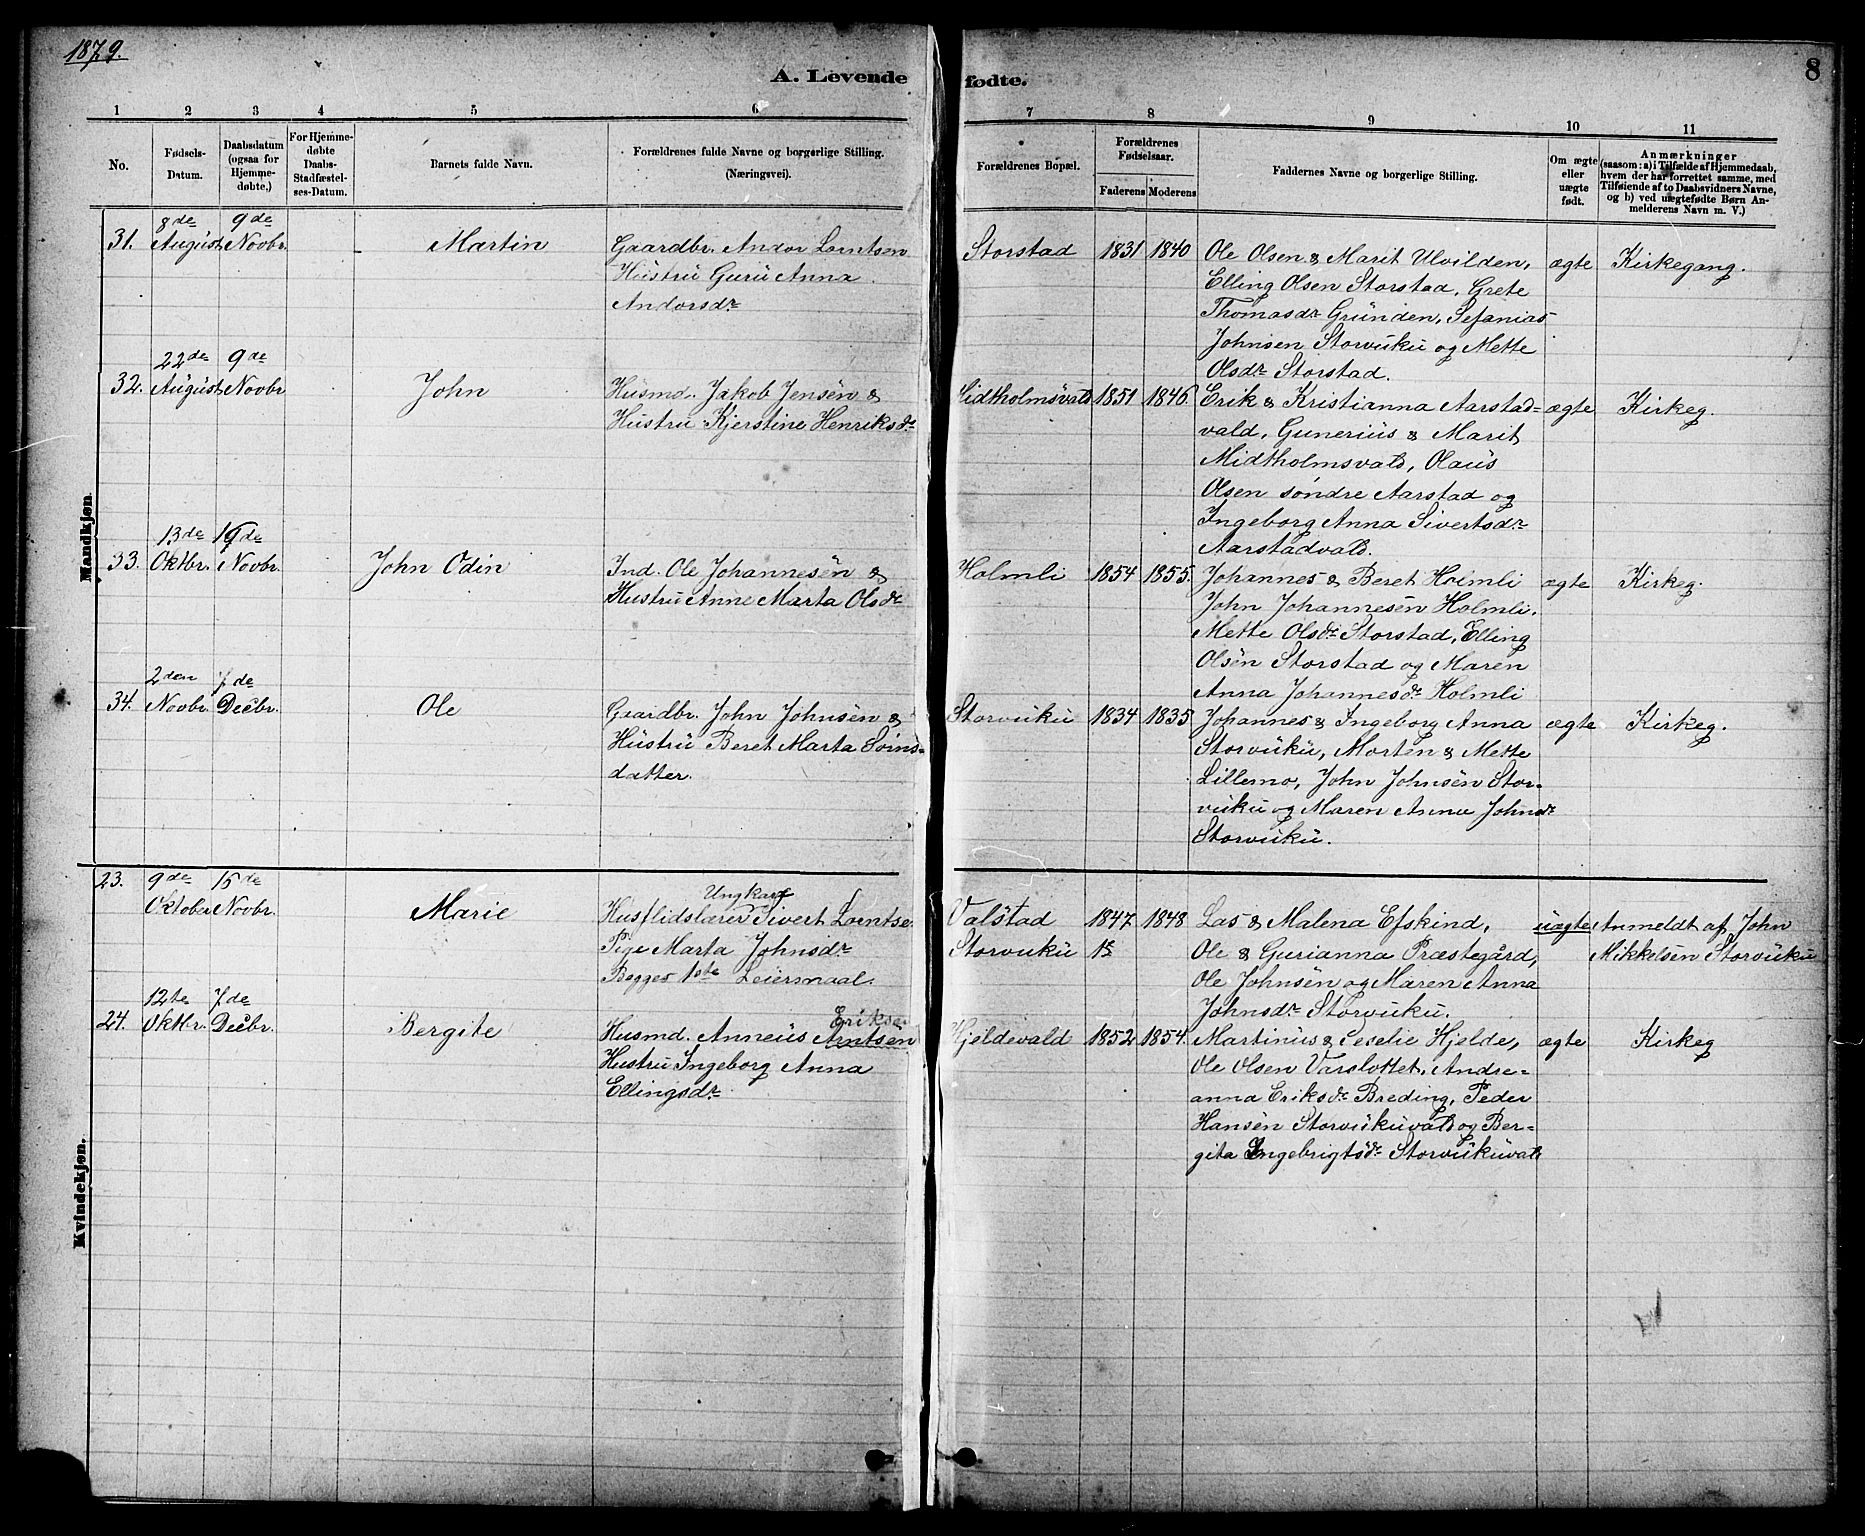 1879.
8
A. Levende fødte.
1 2 3 4 5 6 7 8 9 10 11
No.
Fødsels-
Datum.
Daabsdatum
(ogsaa for
Hjemme-
døbte,)
For Hjemme-
døbte
Daabs-
Stadfæstel-
ses-Datum.
Barnets fulde Navn.
Forældrenes fulde Navne og borgerlige Stilling.
(Næringsvei).
Forældrenes Bopæl.
Forældrenes
Fødselsaar.
Faderens Moderens
Faddernes Navne og borgerlige Stilling.
Om ægte
eller
uægte
født.
Anmærkninger
(saasom: a) i Tilfælde af Hjemmedaab,
hvem der har forrettet samme, med
Tilføiende af to Daabsvidners Navne,
og b) ved uægtefødte Børn An-
melderens Navn m. V.)
Mandkjøn
31.
8de
August
9de
Novbr.
Martin
Gaardbr. Andor Lorntsen
Hustru Guru Anna
Andorsdr
Storstad
1831 1840
Ole Olsen & Marit Ulvilden,
Elling Olsen Storstad, Grete
Thomasdr Grunden, Sefanias
Johnsen Storvuku og Mette
Olsdr Storstad.
ægte
Kirkegang.
32.
22de
August
9de
Novbr
John
Husmd. Jakob Jensen &
Hustru Kjerstine Henriksdr
Midtholmsvald
1851 1846.
Erik & Kristianna Aarstad-
vald, Gunerius & Marit
Midtholmsvald, Olaus
Olsen søndre Aarstad og
Ingeborg Anna Sivertsdr
Aarstadvald.
ægte
Kirkeg.
33.
13de
Oktbr.
19de
Novbr.
John Odin
Ind. Ole Johannesen &
Hustru Anne Marta Olsdr
Holmli
1854 1855.
Johannes & Beret Holmli
John Johannesen Holmli,
Mette Olsdr Storstad, Elling
Olsen Storstad og Maren
Anna Johannesdr Holmli
ægte
Kirkeg.
34.
2den
Novbr.
7de
Decbr.
Ole
Gaardbr. John Johnsen &
Hustru Beret Marta Svins-
datter.
Storvuku
1834 1835
Johannes & Ingeborg Anna
Storvuku, Morten & Mette
Lillemo, John Johnsen Stor-
vuku og Maren Anna Johnsdr
Storvuku.
ægte
Kirkeg.
Kvindekjøn.
23.
9de
Oktober
15de
Novbr.
Marie
Ungkarl
Husflidslærer Sivert Lorntse.
Pige Marta Johnsdr
Begges 1ste Leiersmaal.
Valstad
Storvuku
1847 1848
Las & Malena Efskind,
Ole & Gurianna Præstegård,
Ole Johnsen og Maren Anna
Johnsdr Storvuku.
uægte
Anmeldt af John
Mikkelsen Storvuku
24.
12te
Oktbr.
7de
Decbr.
Bergite
Erikse
Husmd. Anneus Arntsen
Hustru Ingeborg Anna
Ellingsdr
Hjeldevald
1852 1854.
Martinus & Seselie Hjelde,
Ole Olsen Varslottet, Andre-
anna Eriksdr Breding, Peder
Hansen Storvukuvald og Ber-
gita Ingebrigtsdr Storvukuval
ægte
Kirkeg